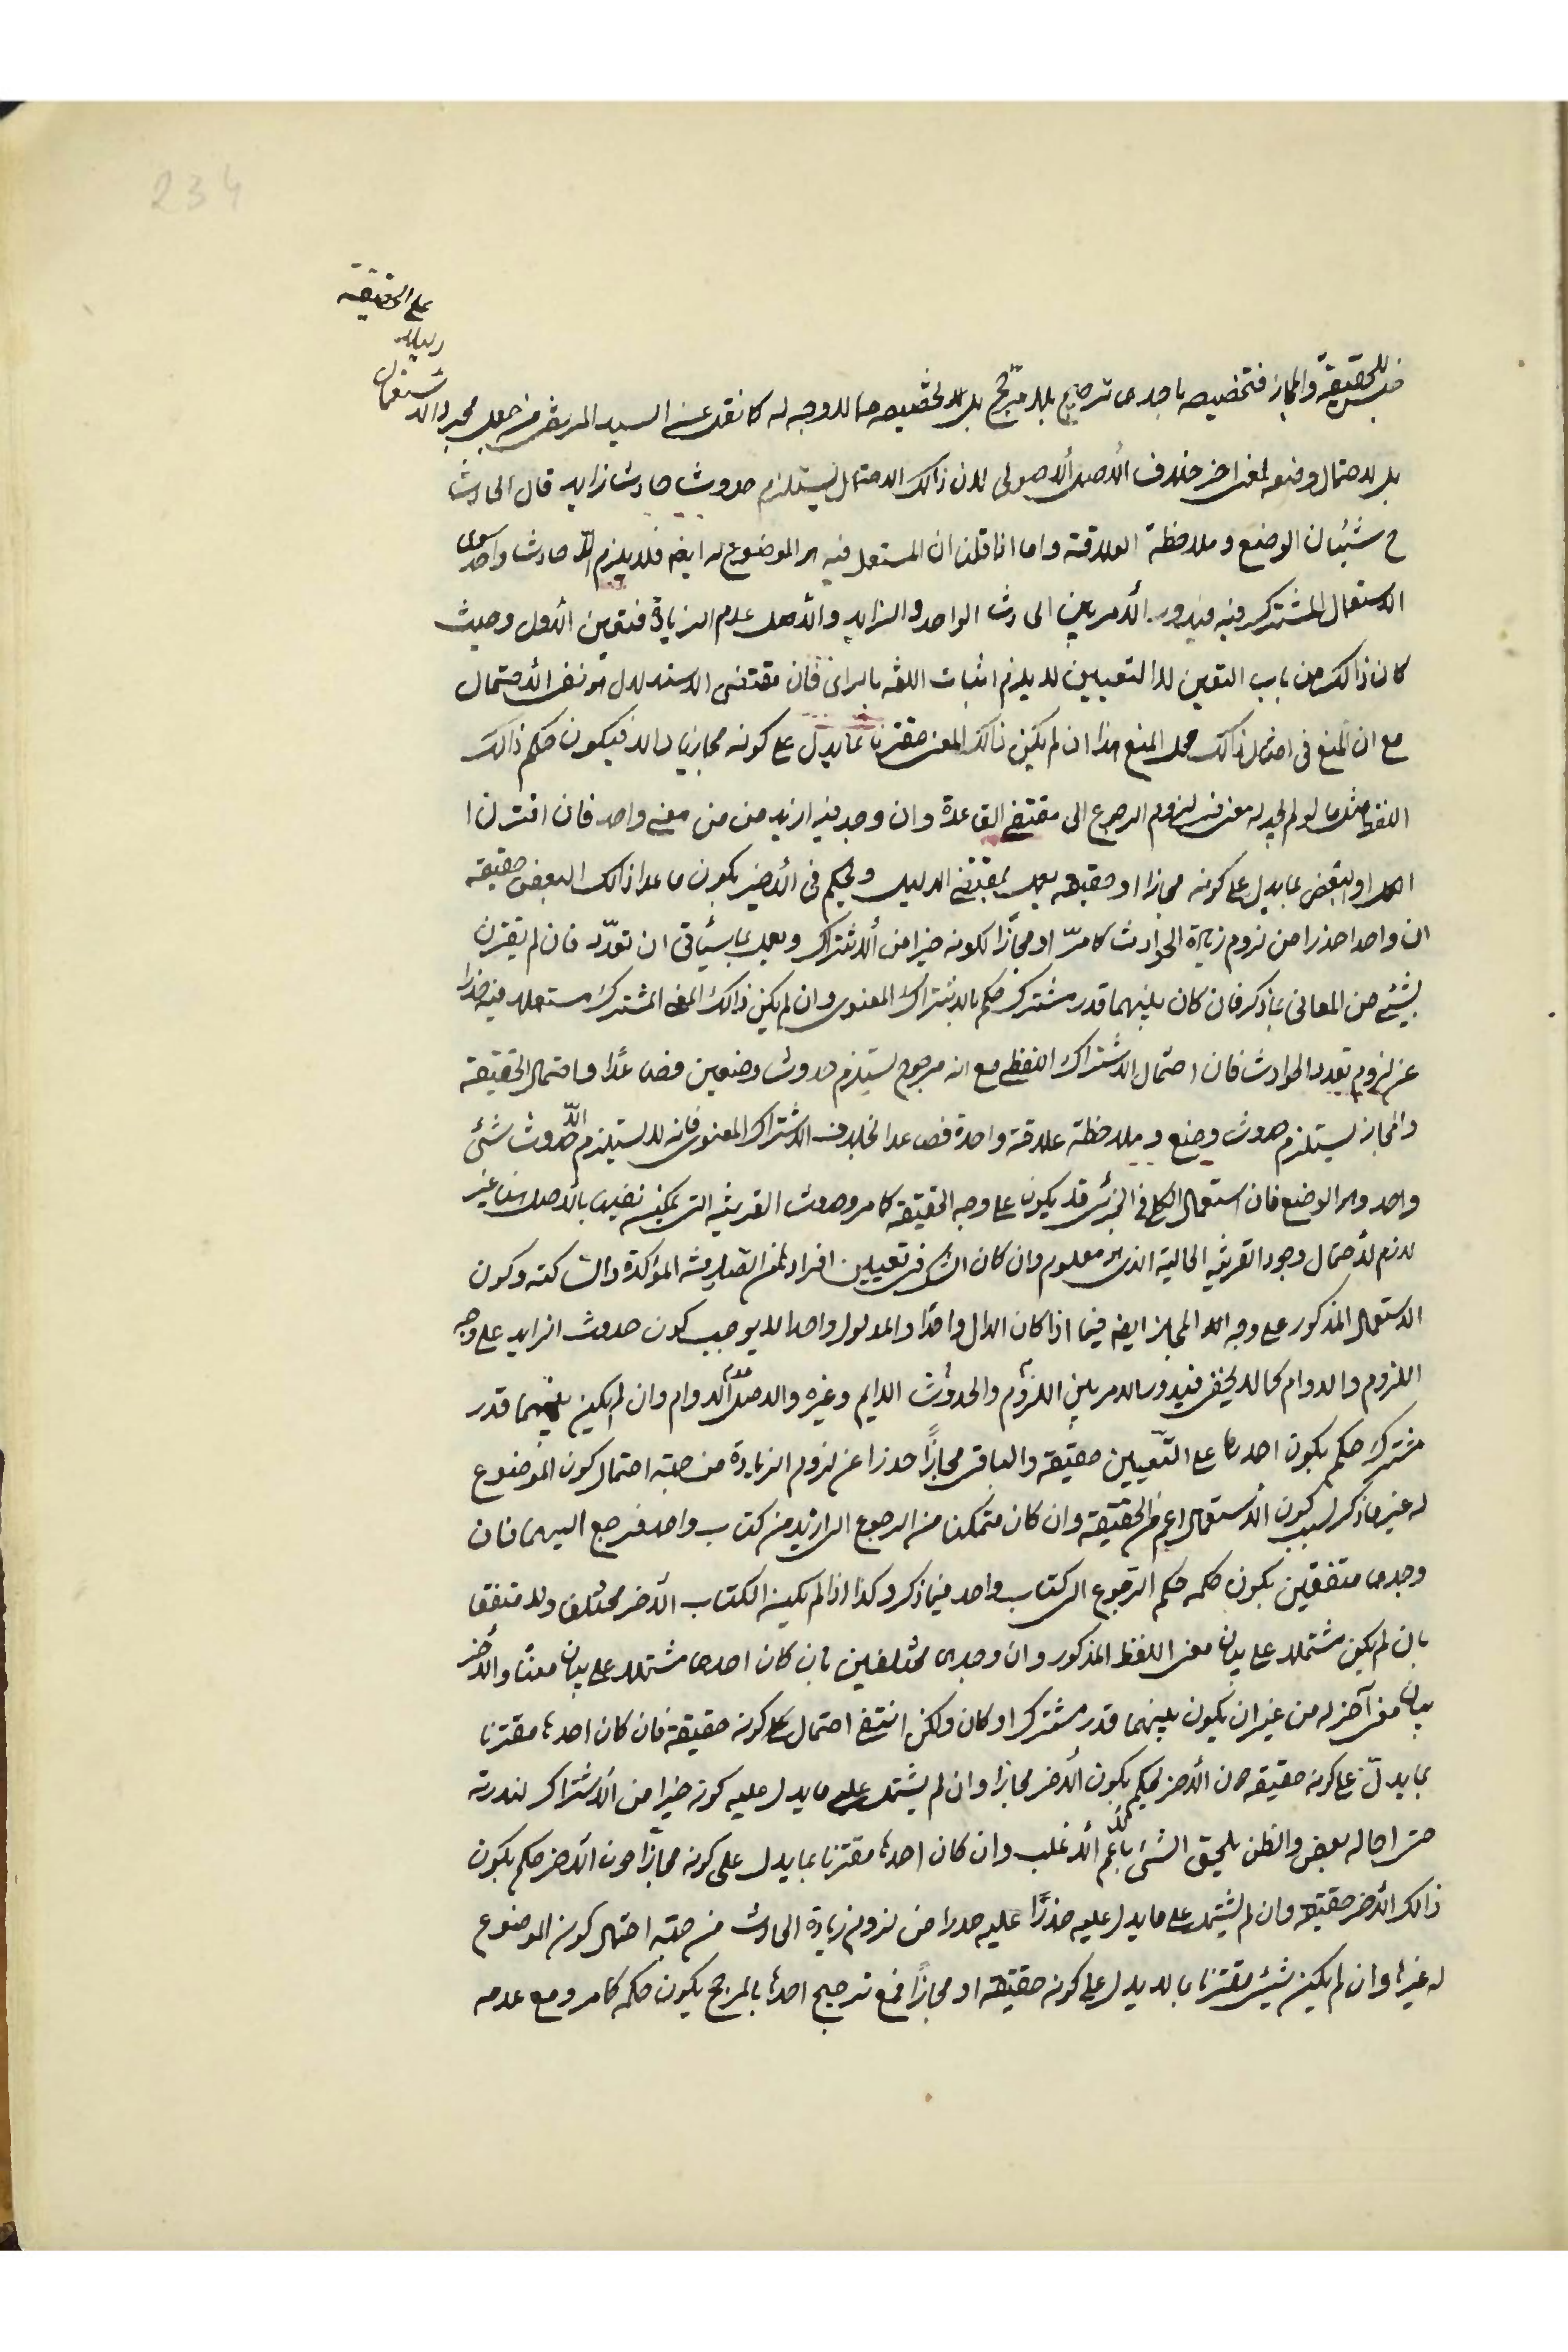 234
على الحقيقة
دليلا
جنس للحقيقة والمجاز فتخصيصه باحدى ترجيح بلا مرجح بل لا تخصيصه مما لا وجه له كما نقل عن السيد المرتضى من جعل مجرد الاستعمال
بل لاحتمال وضعه لمعنى اخر خلاف الاصل الاصولى لان ذالك الاحتمال يستلزم حدوث حادث زايد قال الحادث
ح شيئان الوضع وملاحظة العلاقة واما اذا قلنا ان المستعمل فيه هو الموضوع له ايضا فلا يلزم الا حادث واحد سوى
الاستعمال المشترك فيه فيدور الأمر بين الحادث الواحد والزايد والأصل عدم الزيادة فتعين الأول وحيث
كان ذالك من باب التعين لا التعيين لا يلزم اثبات اللغة بالراى فان مقتضى الاستدلال هو نفى الأحتمال
مع ان المنع فى امثال ذالك محل المنع هذا ان لم يكن ذالك المعنى مقترنا بما يدل على كونه مجازيا والا فيكون حكم ذالك
اللفظ مثل ما لو لم يجد له معنى فى لزوم الرجوع الى مقتضى القاعدة وان وجد فيه ازيد من معنى واحد فان اقترن ا
الكل او البعض بما يدل على كونه مجازا او حقيقة يعمل بمقتضى الدليل ويحكم فى الأخير بكون ما عدا ذالك البعض حقيقة
ان واحدا حذرا من لزوم زيادة الحوادث كما مرّ او مجازًا لكونه خيرا من ألاشتراك ويعمل بما سيأتى ان تعدّد فان لم يقترن
بشيئ من المعانى بما ذكر فان كان بينهما قدر مشترك حكم بالاشتراك المعنوى وان لم يكن ذالك المعنى المشترك مستعملا فيه حذرا
عن لزوم تعدد الحوادث فان احتمال الاشتراك اللفظى مع انه مرجوح يستلزم حدوث وضعين فصاعدًا واحتمال الحقيقة
والمجاز يستلزم حدوث وضع وملاحظة علاقة واحدة فصاعدا بخلاف الاشتراك المعنوى فانه لا يستلزم الّا حدوث شئى
واحد وهو الوضع فان استعمال الكلى فى الجزئى قد يكون على وجه الحقيقة كما مر وحدوث القرينة التى يمكن نفيها بالأصل هنا غير
لازم لأحتمال وجود القرينة الحالية الذى هو معلوم وان كان الشك فى تعيين افراد المعنى القرينة المؤكدة والشاكته وكون
الاستعمال المذكور على وجه المجاز ايضا فيما اذا كان الدال واحدًا والمدلول واحدا لا يوجب كون حدوث الزايد على وجه
اللزوم والدوام كما لا يخفى فيدور الامر بين اللزوم والحدوث الدايم وغيره والاصل عدم الدوام وان لم يكن بينهما قدر
مشترك حكم بكون احدها على التعيين حقيقة والباقى مجازًا حذرا عن لزوم الزيادة من جهة احتمال كون الموضوع
له غير ما ذكر لسبب كون الأستعمال اعم من الحقيقة وان كان متمكنا من الرجوع الى ازيد من كتاب واحد فرجع اليهما فان
وجدها متفقين يكون حكمه حكم الرجوع الى كتاب واحد فيما ذكر وكذا اذا لم يكن الكتاب الأخر مختلفا ولا متفقا
بان لم يكن مشتملا على بيان معنى اللفظ المذكور وان وجدها مختلفين بان كان احدهما مشتملا على بيان معنًى والأخر
بيان معنى آخر له من غير ان يكون بينهما قدر مشترك او كان ولكن انتفى احتمال كونه حقيقة فان كان احدهما مقترنا
بما يدلّ على كونه حقيقة دون الأخر يحكم بكون الأخر مجازا وان لم يشتمل على ما يدل عليه كونه خيرا من ألاشتراك لندرته
حتى احاله بعض والظن يلحق الشئ بالأعم ألأغلب وان كان احدهما مقترنا بما يدل على كونه مجازًا دون الأخر حكم بكون
ذالك الأخر حقيقة وان لم يشتمل على ما يدل عليه حذرًا عليه حذرا من لزوم زيادة الحادث من جهة احتمال كون الموضوع
له غيرها وان لم يكن شيئ مقترنا بما لا يدل على كونه حقيقة او مجازًا فمع ترجيح احدهما بالمرجح يكون حكمه كما مر ومع عدمه